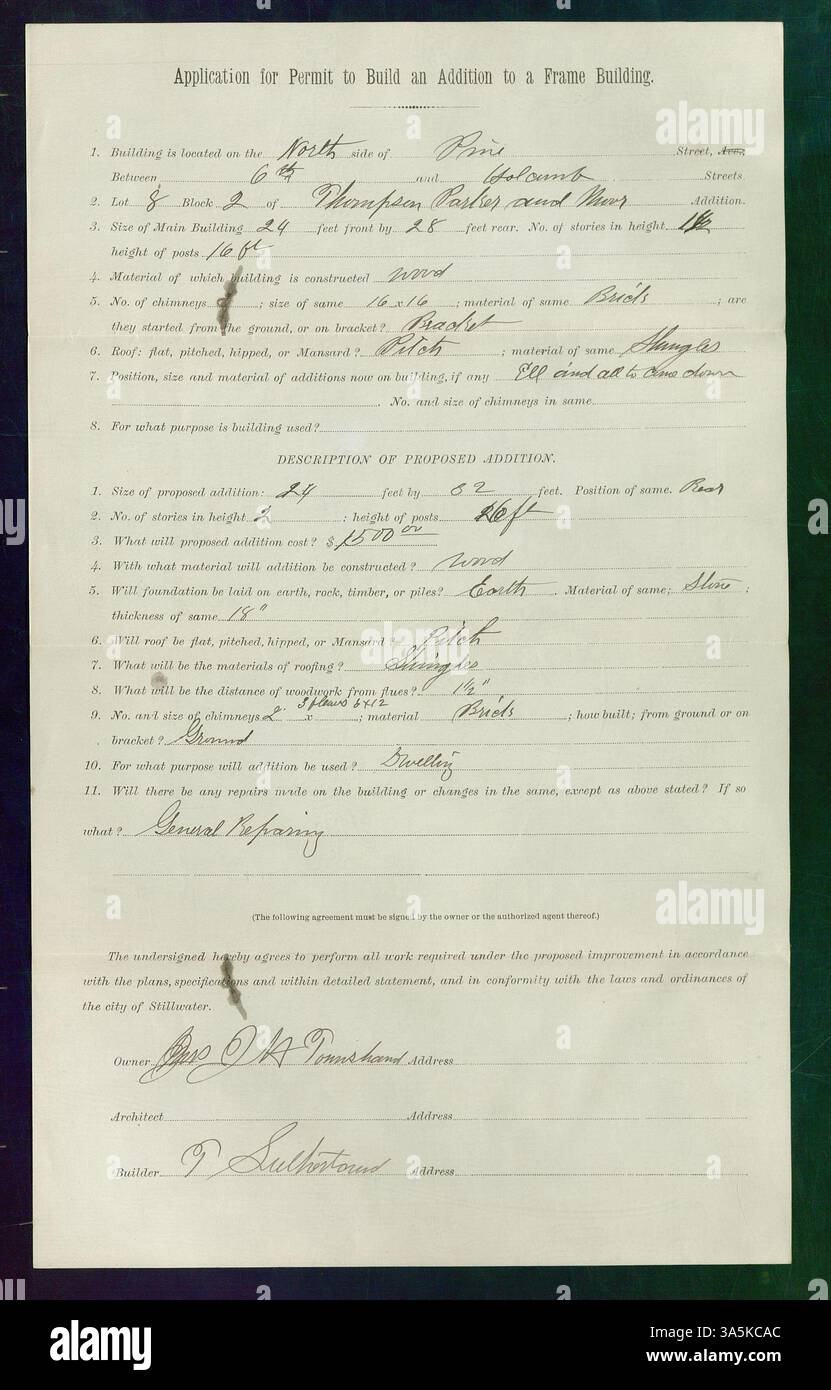 Application for Permit to Build an Addition to a Frame Building.
1. Building is located on the North side of Pine Street, Ave.,
Between 6th and Holcomb Streets
2. Lot 8 Block 2 of Thompson Parker and Addition.
3. Size of Main Building 24 feet front by 28 feet rear. No. of stories in height 1½
height of posts 16 ft
4. Material of which building is constructed wood
5. No. of chimneys ; size of same 16 x 16 ; material of same Brick ; are
they started from the ground, or on bracket? Bracket
6. Roof: flat, pitched, hipped, or Mansard? Pitch ; material of same Shingles
7. Position, size and material of additions now on building, if any Ell and all to come down
No. and size of chimneys in same
8. For what purpose is building used?
DESCRIPTION OF PROPOSED ADDITION.
1. Size of proposed addition: 24 feet by 32 feet. Position of same. Rear
2. No. of stories in height 2 ; height of posts 16 ft
3. What will proposed addition cost? $ 1500 00
4. With what material will addition be constructed? wood
5. Will foundation be laid on earth, rock, timber, or piles? Earth . Material of same; Stone ;
thickness of same 18"
6. Will roof be flat, pitched, hipped, or Mansard? Pitch
7. What will be the materials of roofing? Shingles
8. What will be the distance of woodwork from flues? 1½"
9. No. and size of chimneys 2. 3 flews 6x12 x ; material Brick ; how built; from ground or on
bracket? Ground
10. For what purpose will addition be used? Dwelling
11. Will there be any repairs made on the building or changes in the same, except as above stated? If so
what? General Repairing
(The following agreement must be signed by the owner or the authorized agent thereof.)
The undersigned hereby agrees to perform all work required under the proposed improvement in accordance
with the plans, specifications and within detailed statement, and in conformity with the laws and ordinances of
the city of Stillwater.
Owner Mrs J M Townshand Address
Architect Address
Builder T Address
alamy
Image ID: 3A5KCAC
www.alamy.com